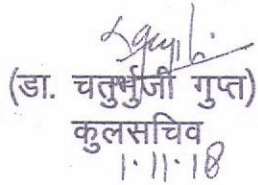 (डा. चतुर्भुजी गुप्त)
कुलसचिव
1.11.18